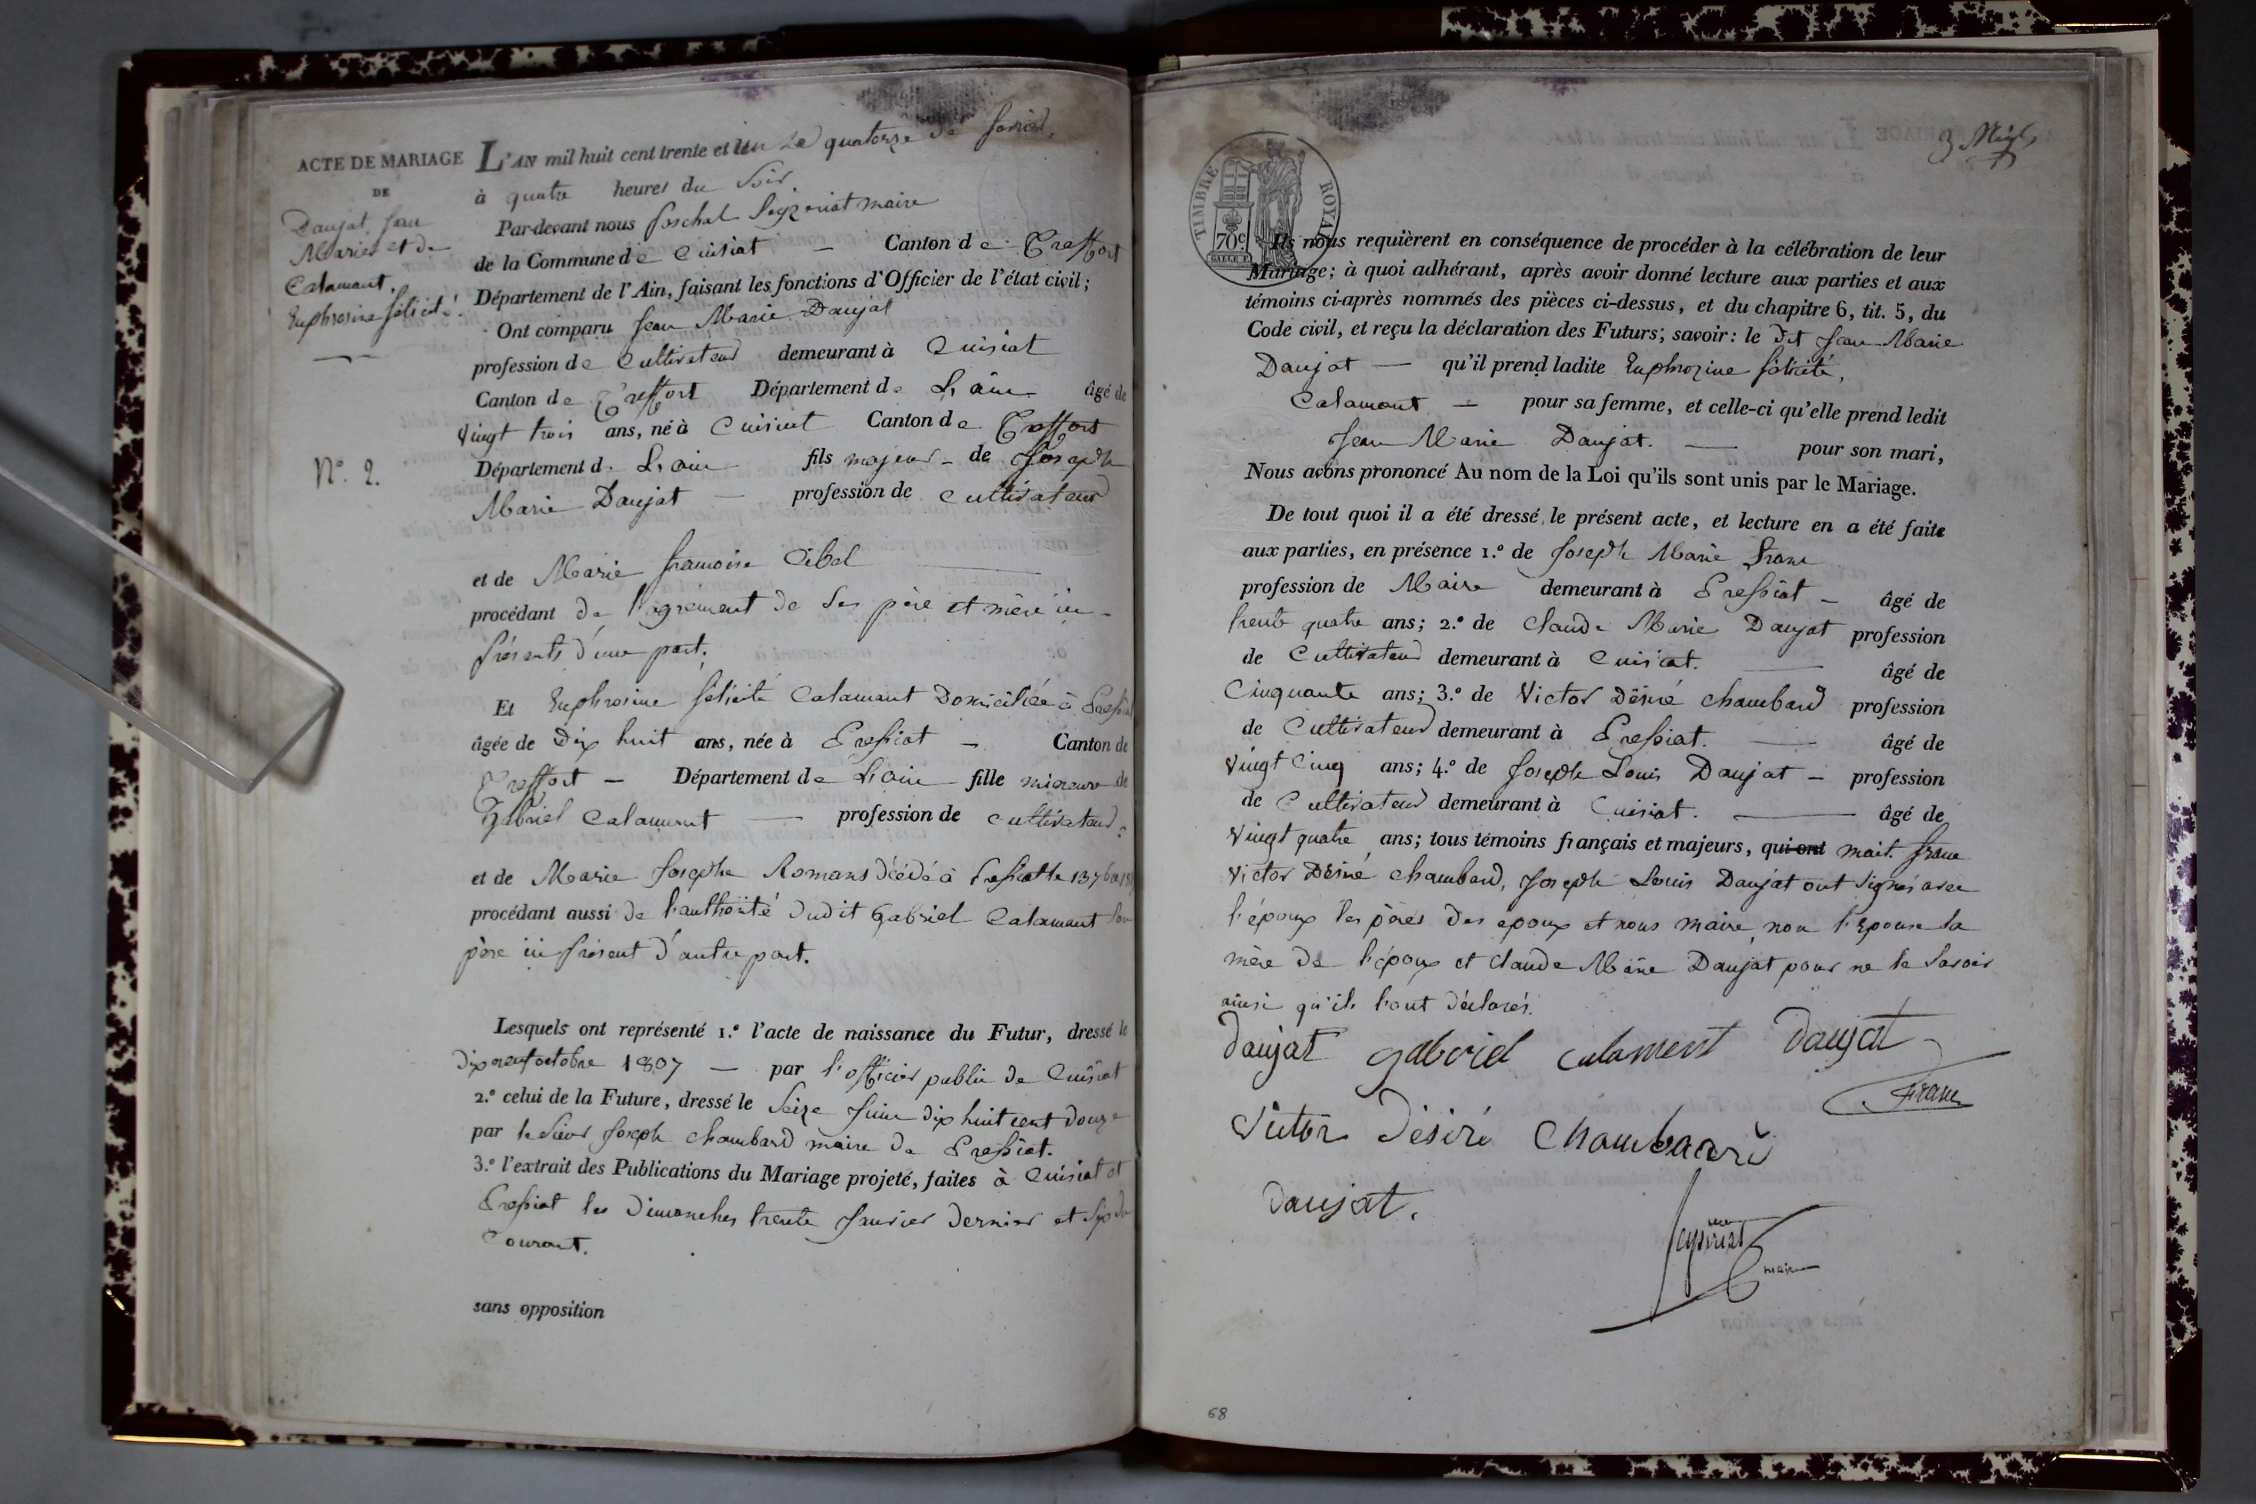 ACTE DE MARIAGE
DE
Daujat, Jean
Marie et de
Calamant,
Euphrosine félicité.
N.º 2.
L'AN mil huit cent trente et un Le quatorze de
à quatre heures du Soir.
Par-devant nous maire
de la Commune de Cuisiat — Canton de Treffort
Département de l'Ain, faisant les fonctions d'Officier de l'état civil;
Ont comparu Jean Marie Daujat
profession de Cultivateur demeurant à Cuisiat
Canton de Treffort Département de L'ain âgé de
Vingt trois ans, né à Cuisiat Canton de Treffort
Département d. L'ain fils majeur - de Joseph
Marie Daujat — profession de cultivateur
et de Marie francoise Cibel
procédant de l'agrement de Ses père et mère ici
présents d'une part.
Et Euphrosine félicité Calamant Domiciliée à Pressiat
âgée de Dix huit ans, née à Pressiat — Canton de
Treffort — Département de L'ain fille mineure de
Gabriel Calamant — profession de cultivateur.
et de Marie Josephe Romans décédé à Pressiat le 13
procédant aussi de l'authorité dudit Gabriel Calamant Son
père ici présent d'autre part.
Lesquels ont représenté 1.º l'acte de naissance du Futur, dressé le
Dix neuf octobre 1807 — par l'officier public de Cuisiat
2.º celui de la Future, dressé le Seize Juin dix huit cent douze
par le Sieur Joseph Chambard maire de Pressiat.
3.º l'extrait des Publications du Mariage projeté, faites à Cuisiat et
Pressiat les Dimanches trente Janvier dernier et Six du
Courant.
sans opposition
TIMBRE ROYAL
70 c
Ils nous requièrent en conséquence de procéder à la célébration de leur
Mariage; à quoi adhérant, après avoir donné lecture aux parties et aux
témoins ci-après nommés des pièces ci-dessus, et du chapitre 6, tit. 5, du
Code civil, et reçu la déclaration des Futurs; savoir: le dit Jean Marie
Daujat — qu'il prend ladite Euphrozine félicité,
Calamant — pour sa femme, et celle-ci qu'elle prend ledit
Jean Marie Daujat. — pour son mari,
Nous avons prononcé Au nom de la Loi qu'ils sont unis par le Mariage.
De tout quoi il a été dressé le présent acte, et lecture en a été faite
aux parties, en présence 1.º de Joseph Marie franc
profession de Maire demeurant à Pressiat — âgé de
trente quatre ans; 2.º de Claude Marie Daujat profession
de Cultivateur demeurant à Cuisiat. — âgé de
Cinquante ans; 3.º de Victor Désiré Chambard profession
de Cultivateur demeurant à Pressiat. — âgé de
Vingt Cinq ans; 4.º de Joseph Louis Daujat — profession
de Cultivateur demeurant à Cuisiat. — âgé de
Vingt quatre ans; tous témoins français et majeurs, qui ont franc
Victor Désiré Chambard, Joseph Louis Daujat ont signés avec
l'époux les pères des époux et nous maire, non l'Epouse la
mère de l'époux et Claude Marie Daujat pour ne le Savoir
ainsi qu'ils l'ont déclarés.
daujat gabriel calament daujat
Franc
Victor Désiré Chambard
daujat.
maire
68